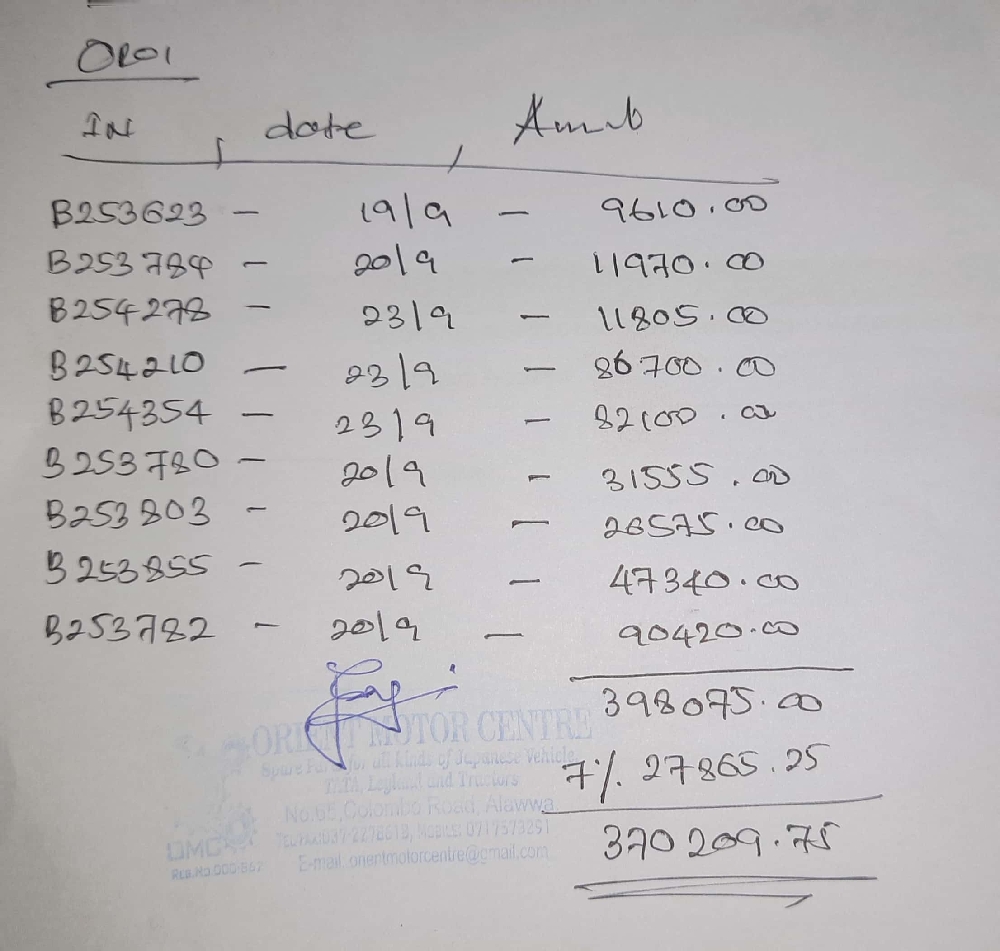 OR01
IN , date , Amnt
B253623 - 19/9 - 9610.00
B253784 - 20/9 - 11970.00
B254278 - 23/9 - 11805.00
B254210 - 23/9 - 86700.00
B254354 - 23/9 - 82100.00
B253780 - 20/9 - 31555.00
B253803 - 20/9 - 26575.00
B253855 - 20/9 - 47340.00
B253782 - 20/9 - 90420.00
398075.00
ORIENT MOTOR CENTRE
Spare Parts for all kinds of Japanese Vehicle,
7% 27865.25
TATA, Leyland and Tractors
No:65,Colombo Road, Alawwa.
370209.75
OMC
E-mail:orientmotorcentre@gmail.com